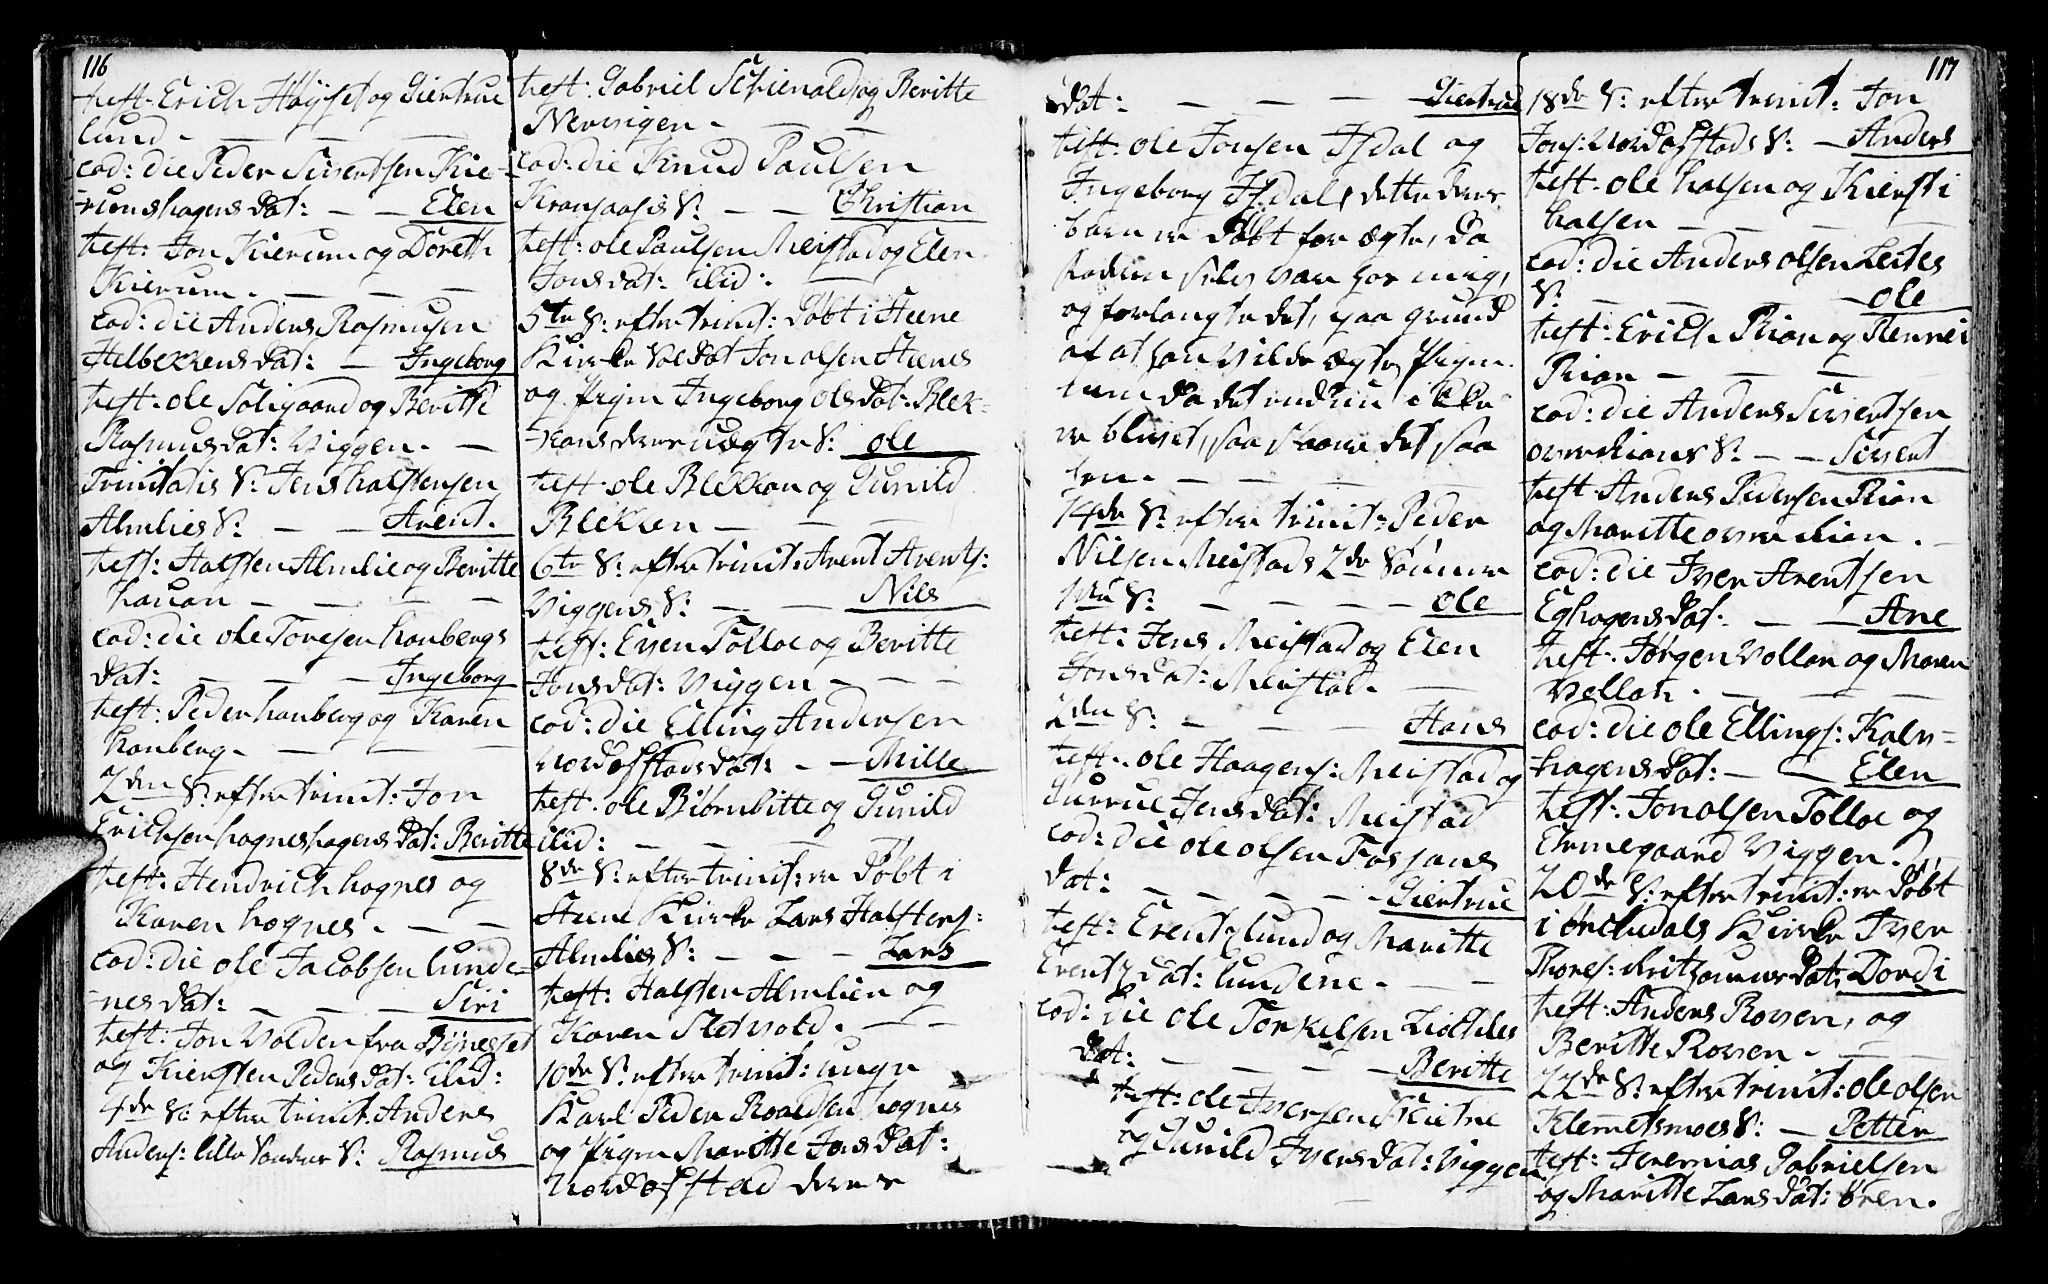 116
test: Erich Høyset og Giertrue
lund.
eod: die Peder Sivertsen Kie-
rumshagens Dat: Elen
test: Jon Kierum og Doreth
Kierum.
eod: die Anders Rasmusen
Helbekkens Dat: Ingeborg
test: ole Soligaard og Beritte
Rasmusdat: Viggen.
Trinitatis S: Jens halstensen
Almlies S: Arent.
test: Halsten Almlie og Beritte
hauan
eod: die ole Toresen hanbergs
Dat: Ingeborg
test: Peder hanberg og Karen
hanberg.
2den S: efter trinit: Jon
Erichsen hognes hagens Dat: Beritte
test: Hendrich hognes og
Karen hognes.
eod: die ole Jacobsen lunde-
nes Dat: Siri
test: Jon Volden fra Bÿnesset
og Kiersten Peders Dat: ibid:
4de S: efter trinit: Anders
Anders: lille S: Rasmus
test: Gabriel og Beritte
eod: die Knud Paulsen
S: Christian
test: ole Paulsen Meistad og Elen
Jonsdat: ibid:
5te S: efter trinit: Døbt i Steene
Kirke Soldat Jon olsen Steenes
og Pigen Ingeborg olsdat: Blek-
kans deres uægte S: ole
test: ole Blekkan og Gunild
Blekken
6te S: efter trinit: Arent Arents:
Viggens S: Nils
test: Even Tolloe og Beritte
Jonsdat: Viggen
eod: die Elling Andersen
Nordøstads dat: Mille
test: ole Biørnbitte og Gunild
ibid:
8de S: efter trinit: er Døbt i
Steene Kirke Lars Halstens:
Almlies S: Lars
test: Halsten Almlien og
Karen Sletvold.
10de S: efter trinit: unge
Karl Peder Roaldsen hognes
og Pigen Maritte Jonsdat:
Nordøstad deres
117
Dat: Giertrue
test: ole Jonsen Isdal og
Ingeborg Isdal, dette deres
barn er Døbt for ægte, da
faderen selv var hos mig,
og forlangte det, paa grund
af at han vilde ægte Pigen.
da det endnu ikke
er blevet, saa staaer det saa
hen.
14de S: efter trinit: Peder
Nilsen Meistads 2de Sønner
1ste S: ole
test: Jens Meistad og Elen
Jonsdat: Meistad.
2den S: Hans
test: ole Haagens: Meistad og
Guru Jensdat: Meistad
eod: die ole olsen Fosjans
dat: Giertrue
test: Erentz lund og Maritte
Erentz Dat: lundene.
eod: die ole Torkelsen
Dat: Beritte
test: ole Iversen
og Gunild Iversdat: Viggen
18de S: efter trinit: Jon
Jons: Nordøstads S: Anders
test: ole halsen og Kiersti
halsen
eod: die Anders olsen
S: ole
test: Erich Rian og
Rian
eod: die Anders Sivertsen
overrians S: Sivert
test: Anders Pedersen Rian
og Maritte overrian.
eod: die Iver Arentsen
Eghagens dat: Ane
test: Jørgen Vollan og Maren
Vollan.
eod: die ole Ellings: Kaln-
hagens Dat: Elen
test: Jon olsen Tolloe og
Ermegaard Viggen.
20de S: efter trinit: er døbt
i orchedals Kirke Iver
Thores: Dat: Dordi
test: Anders Roven, og
Beritte Roven.
22de S: efter trinit: ole olsen
Klemetsmoes S: Petter
test: Jeremias Gabrielsen
og Maritte Larsdat: ören.